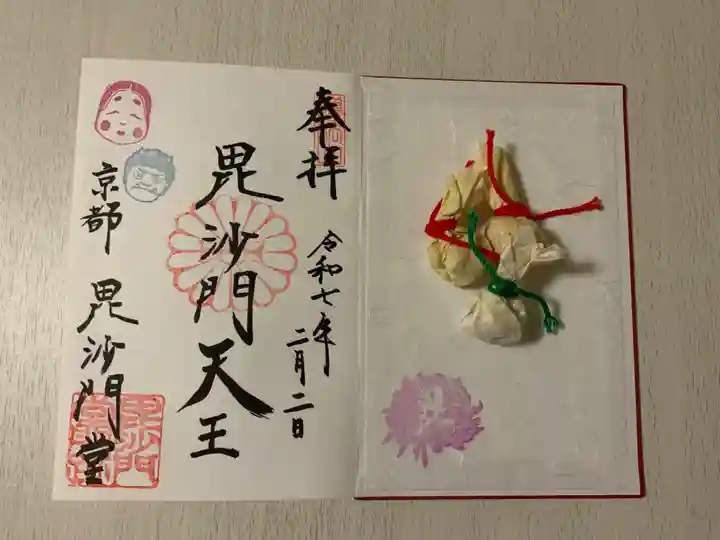 奉拝
令和七年
二月二日
毘沙門天王
京都 毘沙門堂